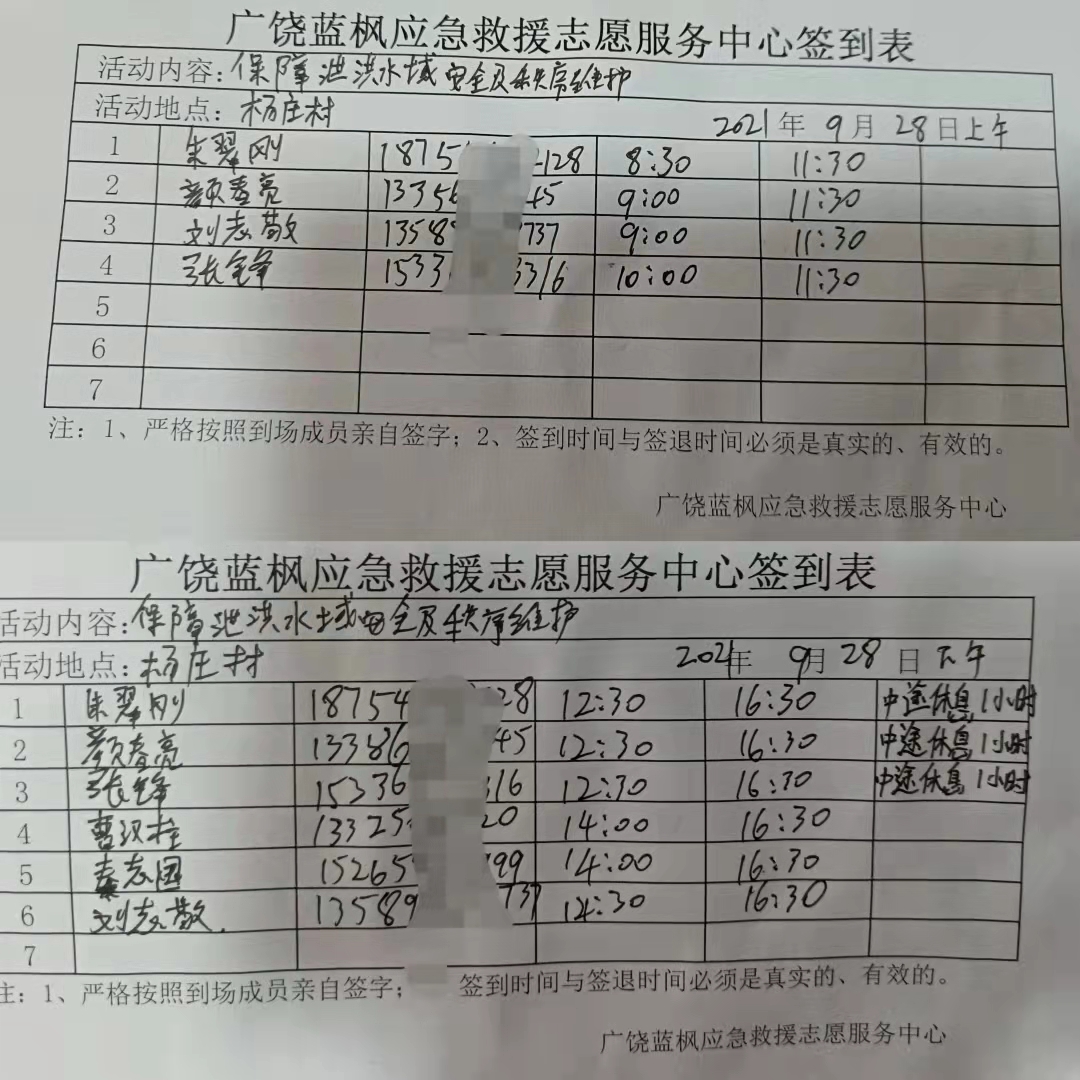 广饶蓝枫应急救援志愿服务中心签到表
活动内容:保障泄洪水域安全及秩序维护
活动地点:杨庄村 2021年 9月 28日上午
1 朱翠刚 1875 128 8:30 11:30
2 颜春亮 1335 45 9:00 11:30
3 刘志敬 1358 737 9:00 11:30
4 张金锋 1533 3316 10:00 11:30
5
6
7
注:1、严格按照到场成员亲自签字;2、签到时间与签退时间必须是真实的、有效的。
广饶蓝枫应急救援志愿服务中心
广饶蓝枫应急救援志愿服务中心签到表
活动内容:保障泄洪水域安全及秩序维护
活动地点:杨庄村 2021年 9月 28日下午
1 朱翠刚 18754 28 12:30 16:30 中途休息1小时
2 颜春亮 13386 45 12:30 16:30 中途休息1小时
3 张金锋 15336 316 12:30 16:30 中途休息1小时
4 曹汉柱 13325 20 14:00 16:30
5 秦志国 15265 199 14:00 16:30
6 刘志敬 13589 737 14:30 16:30
7
注:1、严格按照到场成员亲自签字; 签到时间与签退时间必须是真实的、有效的。
广饶蓝枫应急救援志愿服务中心